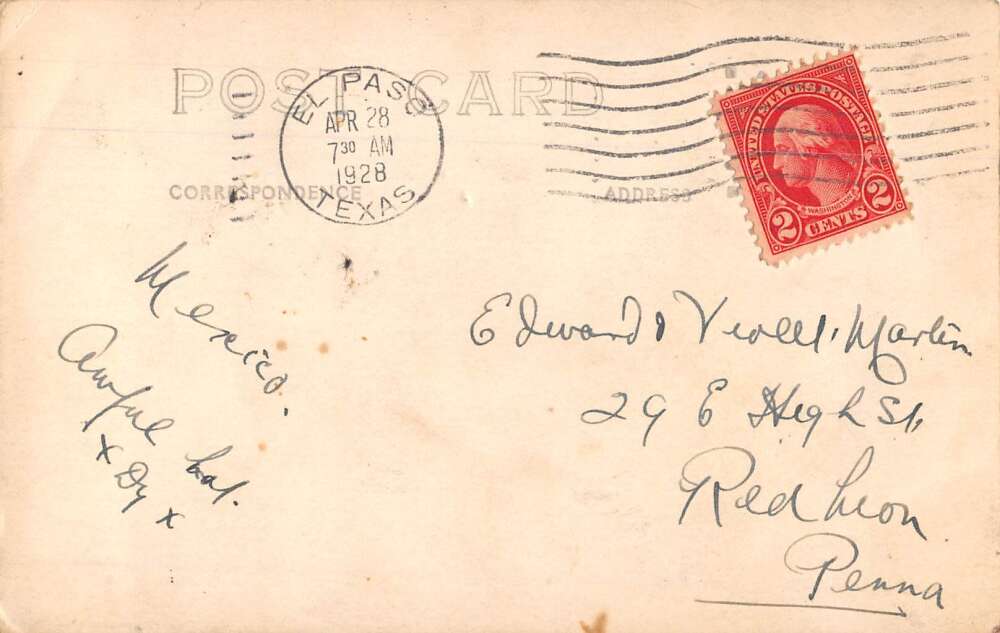 POST CARD
EL PASO
APR 28
7 30 AM
1928
TEXAS
UNITED STATES POSTAGE
WASHINGTON
2 CENTS 2
CORRESPONDENCE
ADDRESS
Mexico.
Awful hot.
x Dy x
Edward & Violet Martin
29 E High St.
Red Lion
Penna